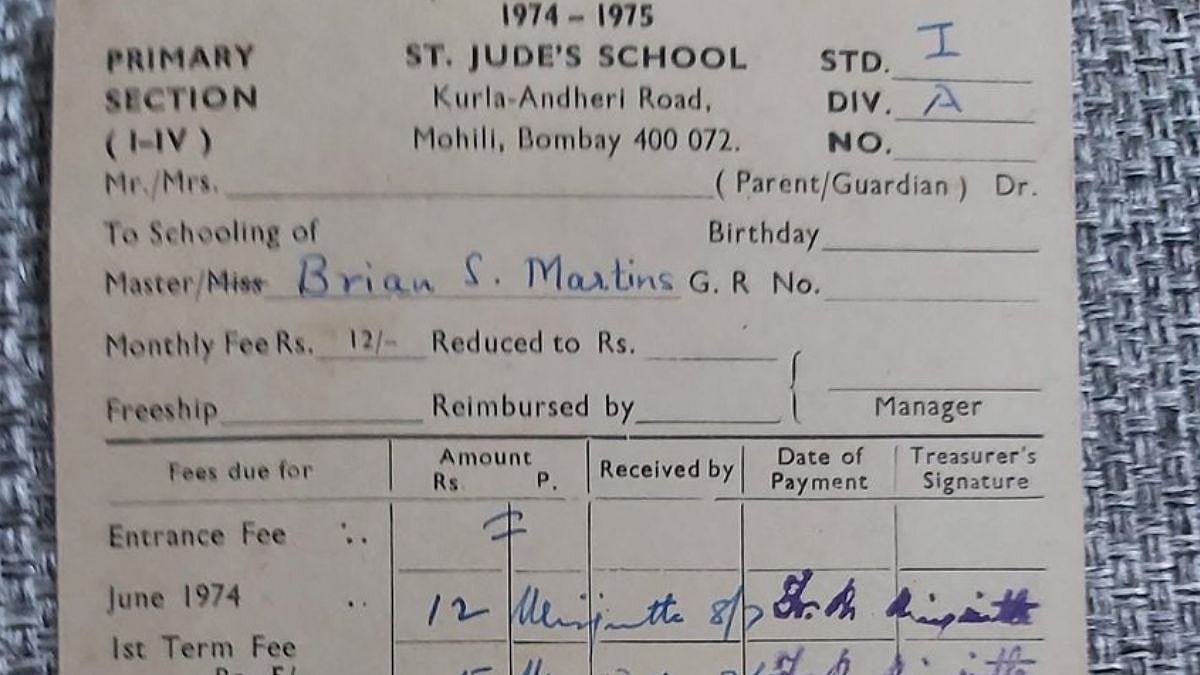 1974 - 1975
PRIMARY ST. JUDE'S SCHOOL STD. I
SECTION Kurla-Andheri Road, DIV. A
( I-IV ) Mohili, Bombay 400 072. NO.
Mr./Mrs. ( Parent/Guardian ) Dr.
To Schooling of Birthday
Master/Miss Brian S. Martins G. R No.
Monthly Fee Rs. 12/- Reduced to Rs.
Freeship Reimbursed by Manager
Fees due for Amount Received by Date of Treasurer's
Rs. P. Payment Signature
Entrance Fee
June 1974 .. 12 8/7
1st Term Fee